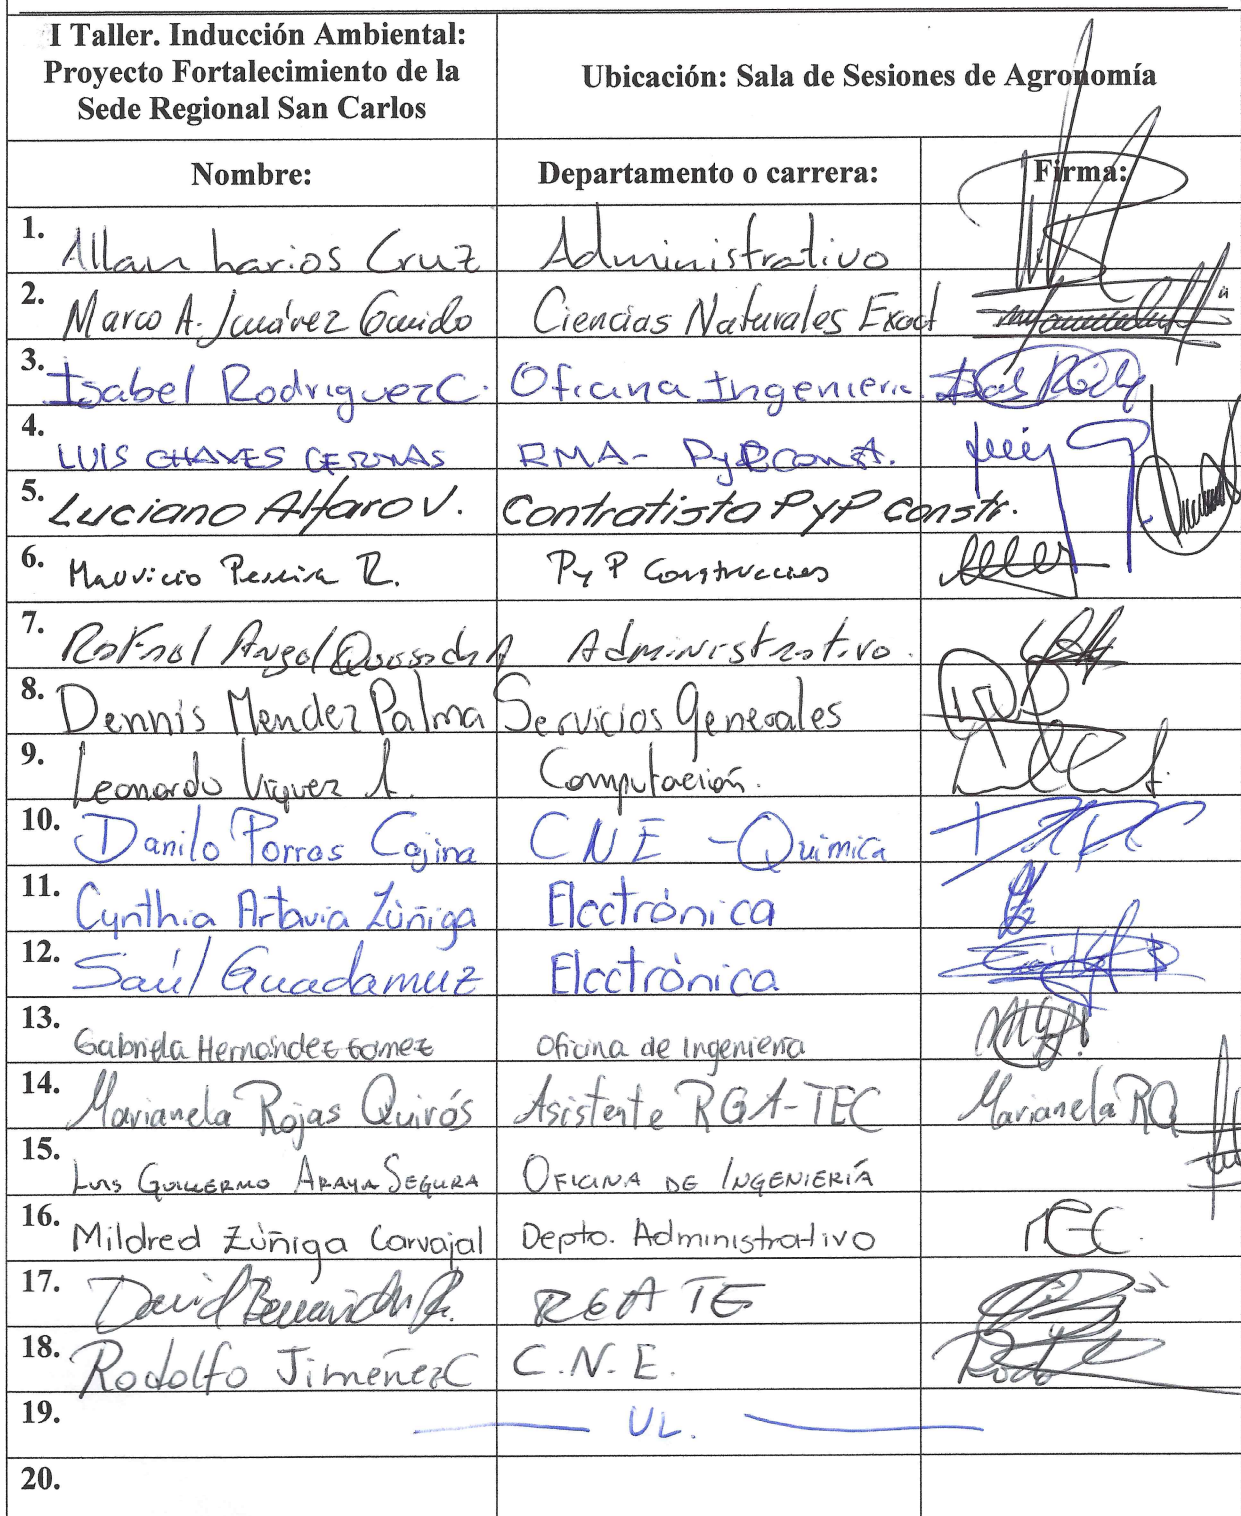 I Taller. Inducción Ambiental:
Proyecto Fortalecimiento de la
Sede Regional San Carlos
Ubicación: Sala de Sesiones de Agronomía
Nombre: Departamento o carrera: Firma:
1. Allan Larios Cruz Administrativo
2. Marco A. Juárez Guido Ciencias Naturales Exact
3. Isabel Rodriguez C. Oficina Ingenieria
4. LUIS CHAVES CERNAS RMA- PyP Const.
5. Luciano Alfaro V. Contratista PyP constr.
6. Mauricio Pereira R. Py P Construcciones
7. Rafael Angel Quesada A Administrativo.
8. Dennis Mendez Palma Servicios Generales
9. Leonardo Víquez A. Computación.
10. Danilo Porras Cajina CNE - Química
11. Cynthia Artavia Zúñiga Electrónica
12. Saúl Guadamuz Electrónica
13. Gabriela Hernández Gómez Oficina de Ingeniería
14. Marianela Rojas Quirós Asistente RGA-TEC Marianela RQ
15. LUIS GUILLERMO ARAYA SEGURA OFICINA DE INGENIERÍA
16. Mildred Zúñiga Carvajal Depto. Administrativo
17. David RGA TE
18. Rodolfo Jiménez C C.N.E. Rodo
19. UL.
20.